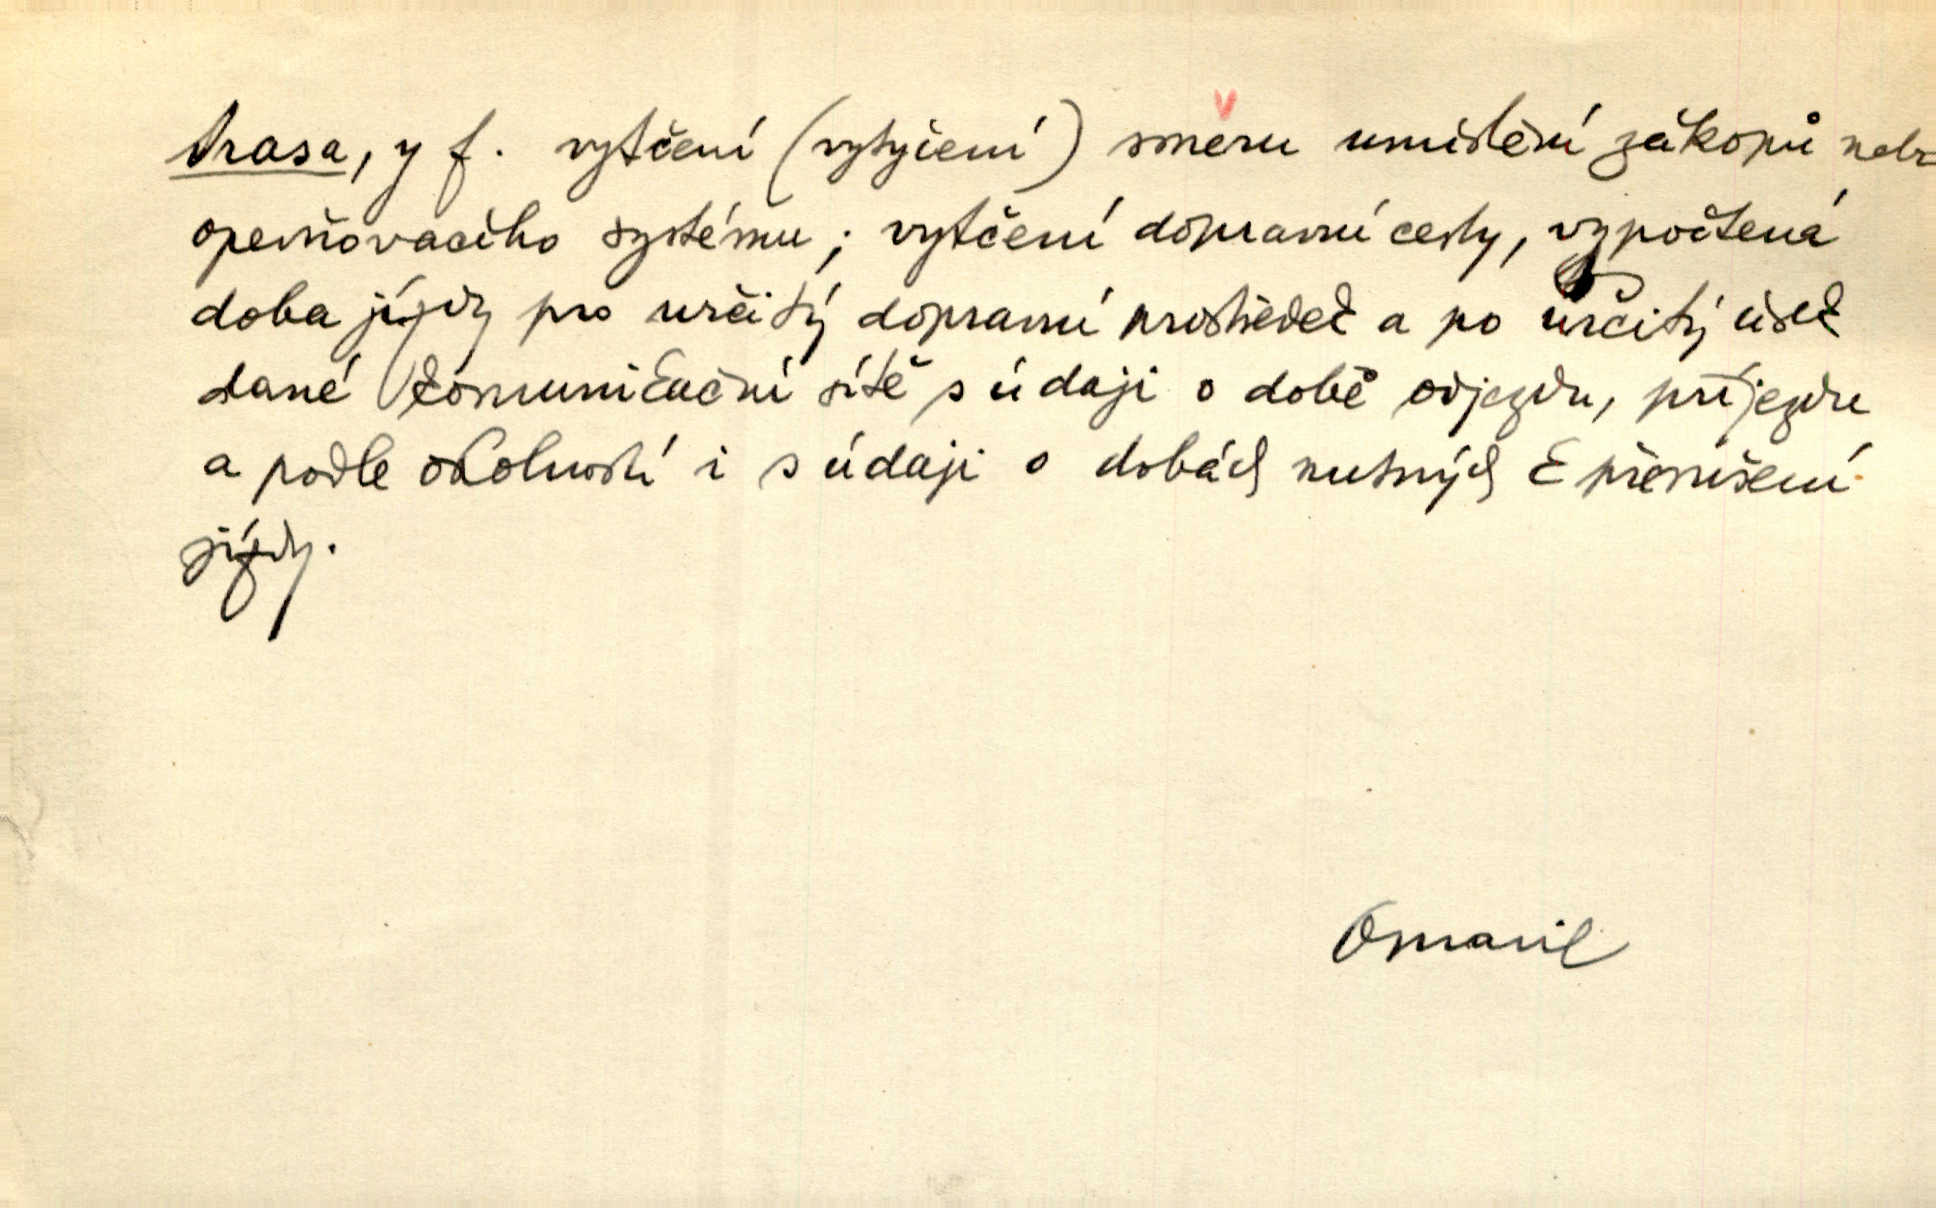 trasa, y f. vytčení (vytyčení) směru umístění zákopů nebo
opevňovacího systému; vytčení dopravní cesty, vypočtená
doba jízdy pro určitý dopravní prostředek a po určitý úsek
dané komunikační sítě s údaji o době odjezdu, příjezdu
a podle okolností i s údaji o dobách nutných k přerušení
jízdy.